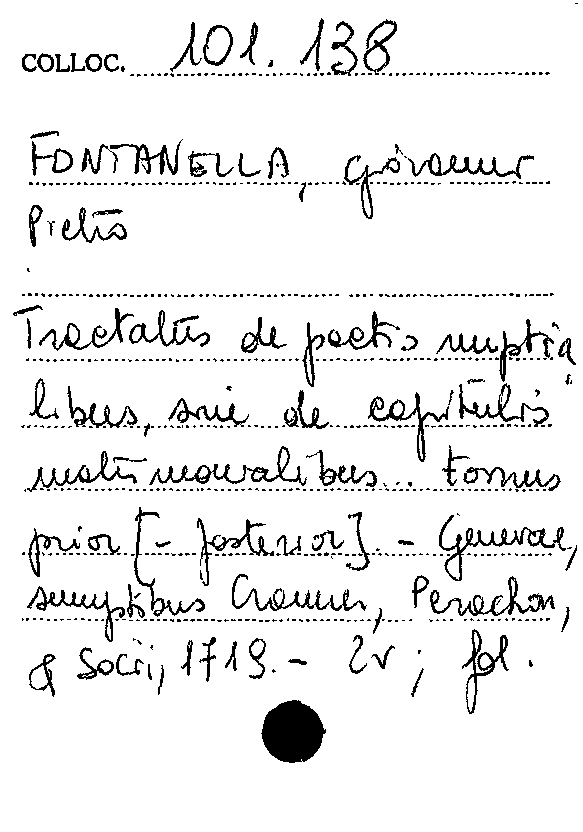 COLLOC. 101. 138
FONTANELLA, Giovanni
Pietro
Tractatus de pactis nuptia
libus, sive de capitulis
matrimonialibus... tomus
prior [- posterior] - Genevae,
sumptibus Cramer, Perachon,
& Socii, 1719. - 2v ; fol.